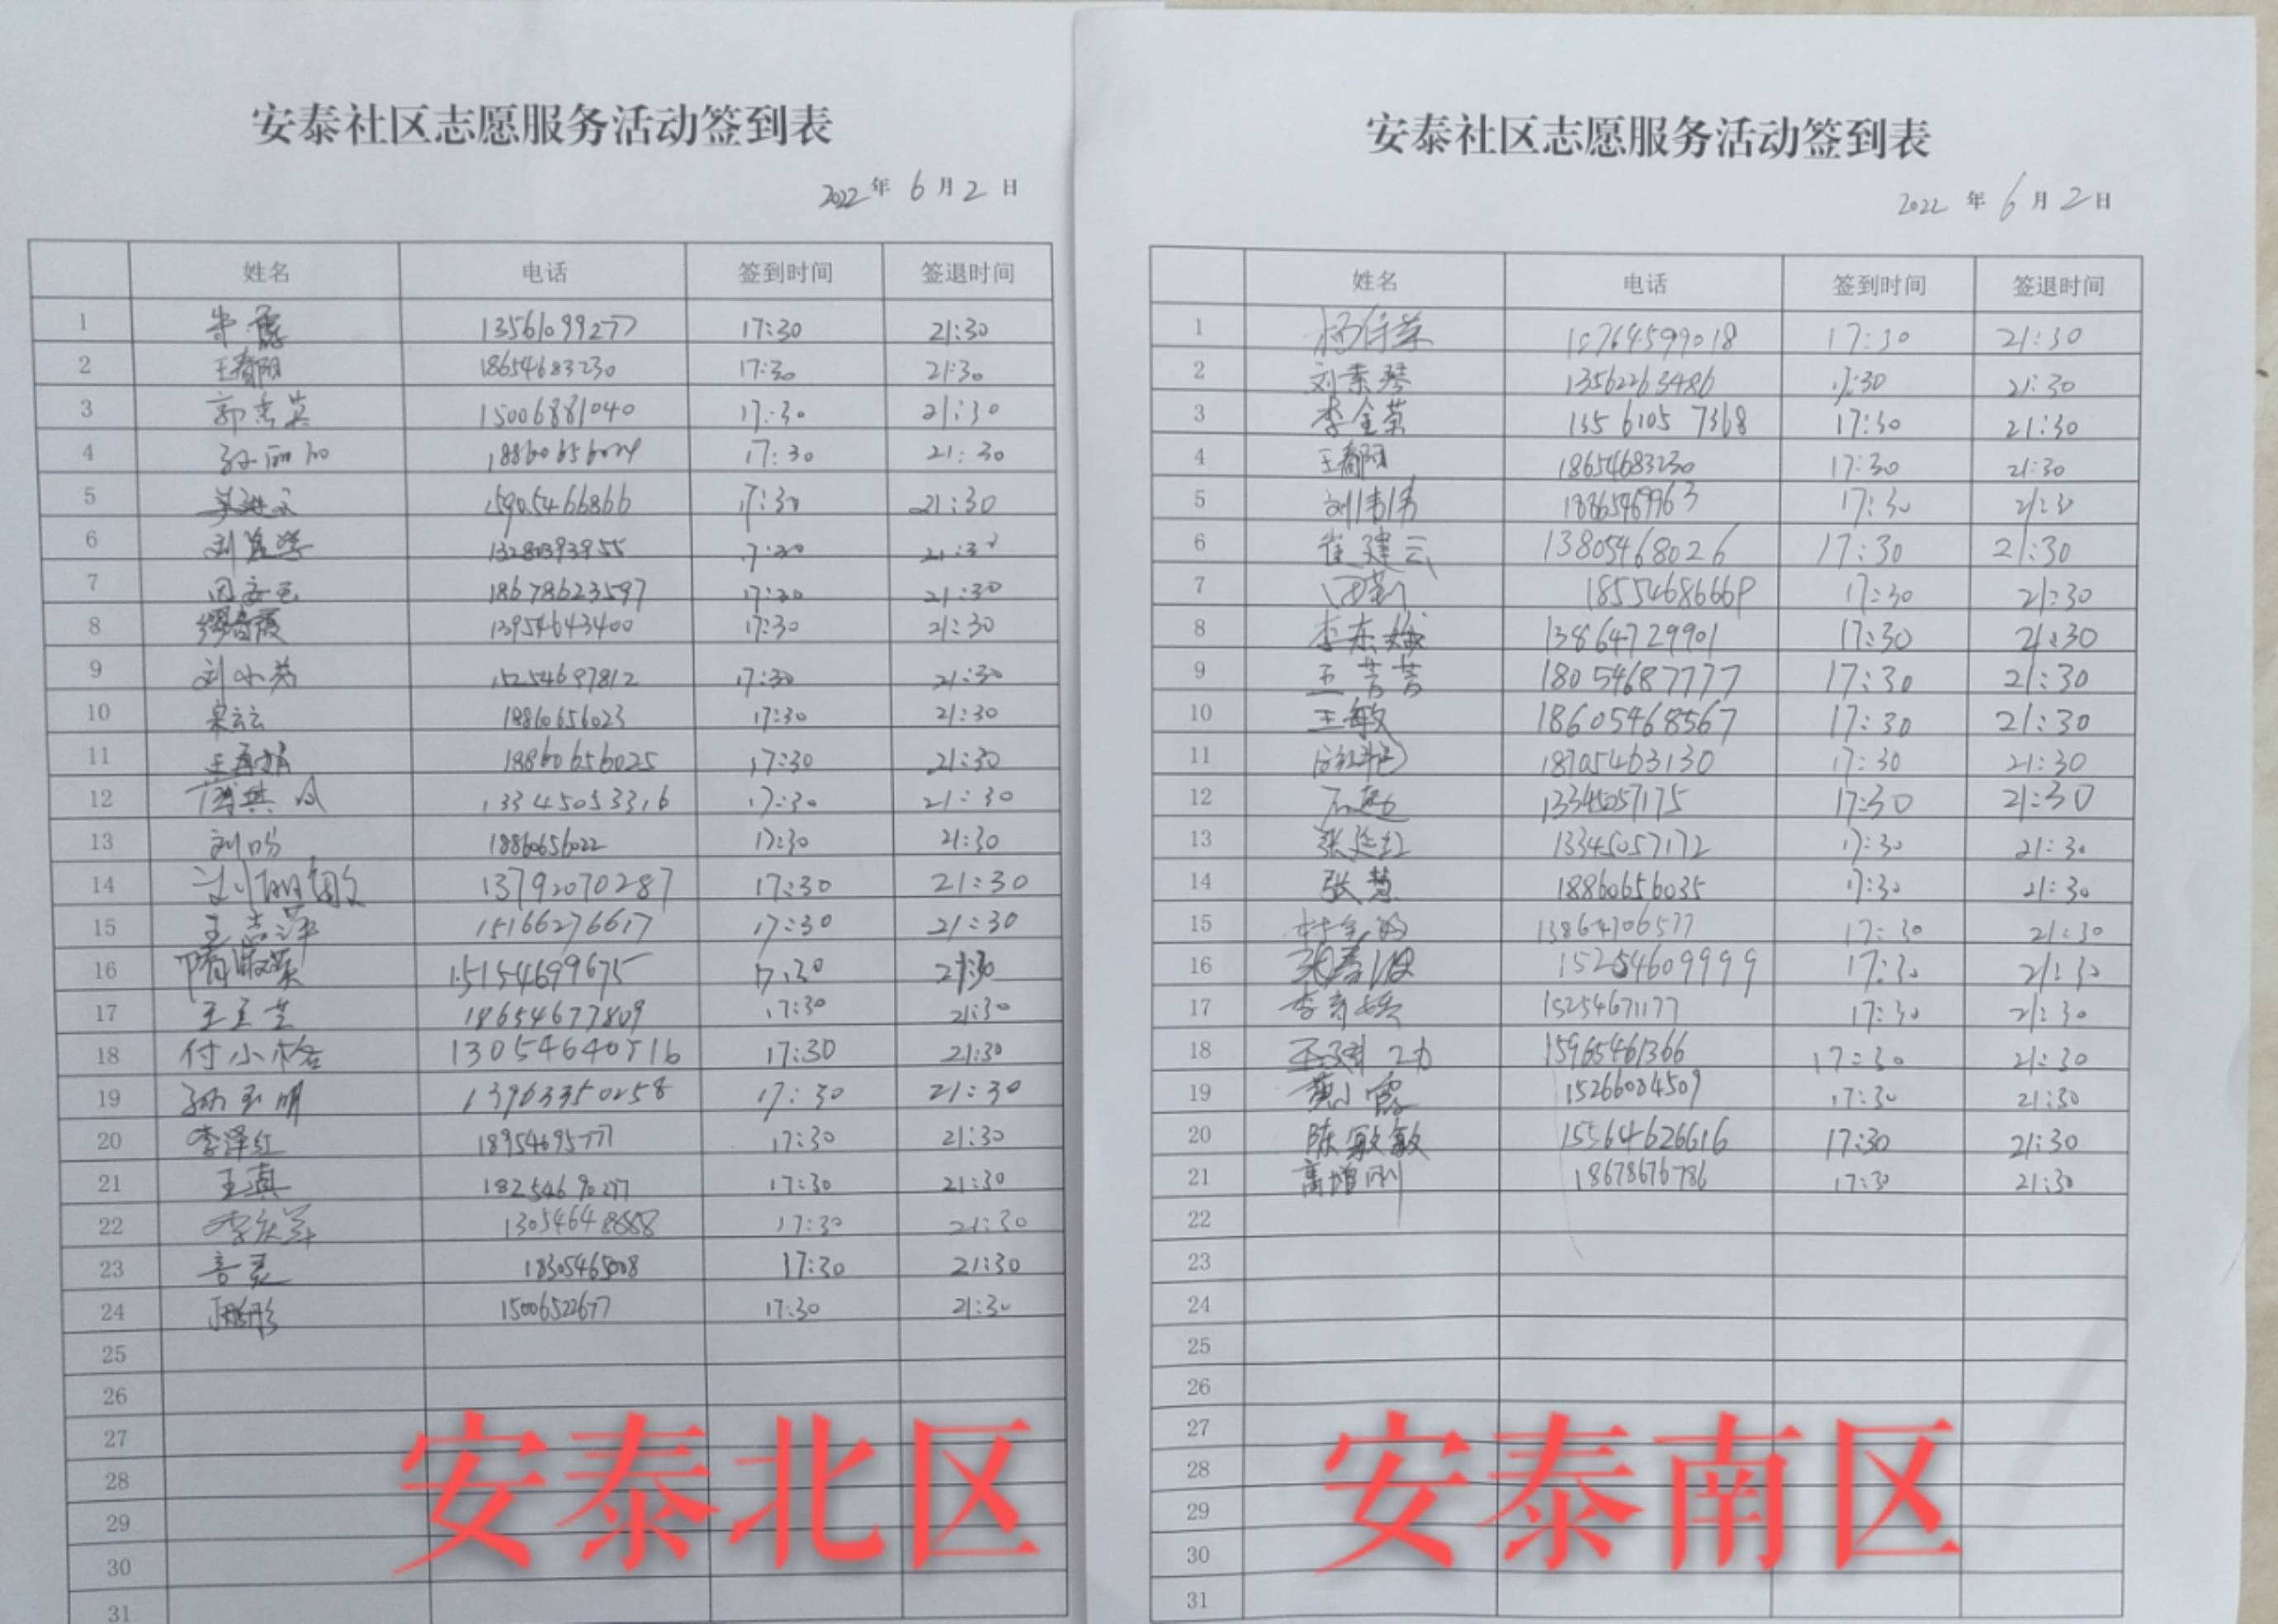 安泰社区志愿服务活动签到表
2022年6月2日
姓名 电话 签到时间 签退时间
1 13561099277 17:30 21:30
2 18654683230 17:30 21:30
3 郭秀英 15006881040 17:30 21:30
4 孙丽 17:30 21:30
5 15905466866 17:30 21:30
6 13280393955 21:30
7 18678623597 17:30 21:30
8 13954643400 17:30 21:30
9 刘小芳 15254697812 17:30 21:30
10 宋云云 18860656023 17:30 21:30
11 王再娟 18860656025 17:30 21:30
12 13345053316 17:30 21:30
13 18860656022 17:30 21:30
14 13792070287 17:30 21:30
15 王志萍 15166276617 17:30 21:30
16 隋淑英 15154699675 17:30 21:30
17 18654677809 17:30 21:30
18 付小格 17:30 21:30
19 孙玉明 13963350258 17:30 21:30
20 李泽红 18954695777 17:30 21:30
21 王真 17:30 21:30
22 李庆军 13054648888 17:30 21:30
23 17:30 21:30
24 15006522677 17:30 21:30
25
26
27
28
29
30
31
安泰北区
安泰社区志愿服务活动签到表
2022年6月2日
姓名 电话 签到时间 签退时间
1 17:30 21:30
2 刘素琴 13562263486 17:30 21:30
3 李金荣 13561057368 17:30 21:30
4 18654683230 17:30 21:30
5 17:30 21:30
6 崔建云 13805468026 17:30 21:30
7 17:30 21:30
8 13864729901 17:30 21:30
9 王芳芳 18054687777 17:30 21:30
10 王敏 18605468567 17:30 21:30
11 18705463130 17:30 21:30
12 13345057175 17:30 21:30
13 张廷红 13345057172 17:30 21:30
14 张慧 18860656035 17:30 21:30
15 13864706577 17:30 21:30
16 15254609999 17:30 21:30
17 15254671177 17:30 21:30
18 15965461366 17:30 21:30
19 黄小霞 15266004509 17:30 21:30
20 陈敏敏 15564626616 17:30 21:30
21 高增刚 18678676786 17:30 21:30
22
23
24
25
26
27
28
29
30
31
安泰南区